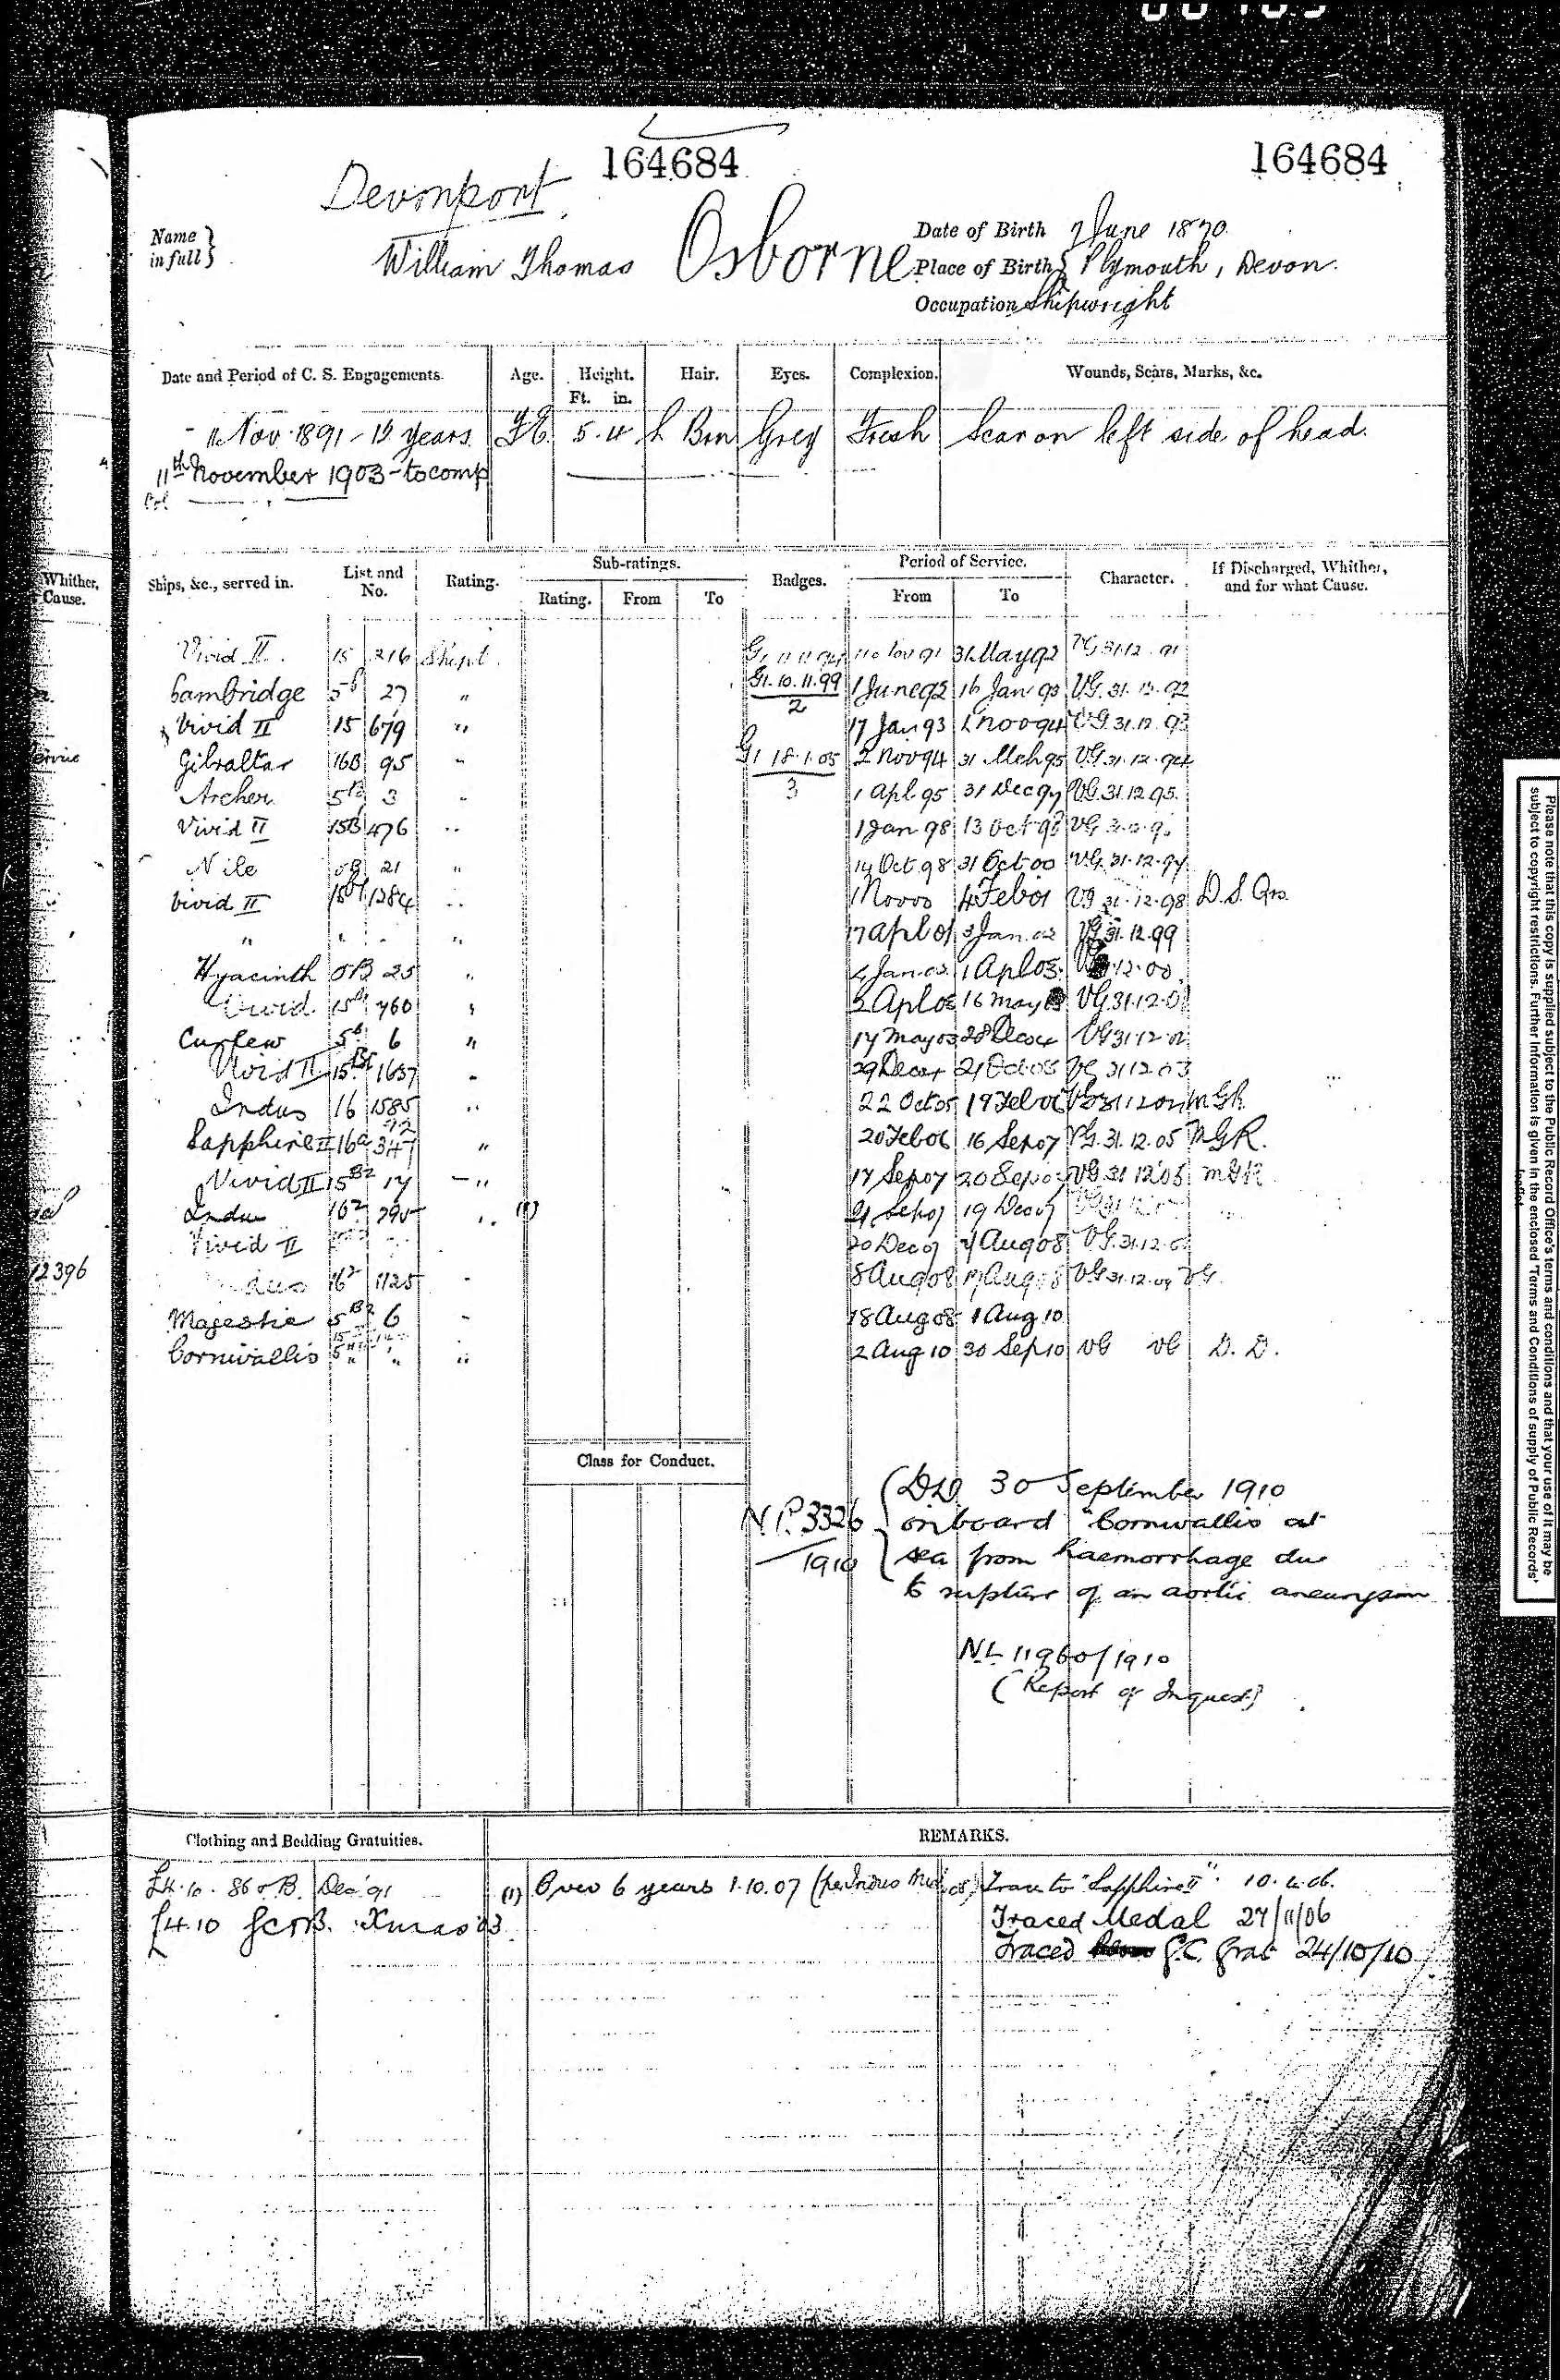 164684 164684
Devonport
Name in full } William Thomas Osborne
Date of Birth 7 June 1870
Place of Birth } Plymouth, Devon.
Occupation Shipwright
Date and Period of C. S. Engagements. Age. Height. Ft. in. Hair. Eyes. Complexion. Wounds, Scars, Marks, &c.
11 Nov. 1891 - 12 years 5. 4 Brn Grey Fresh Scar on left side of head.
11th November 1903 - to comp
Whither, Cause.
Ships, &c., served in. List and No. Rating. Sub-ratings. Rating. From To Badges. Period of Service. From To Character. If Discharged, Whither, and for what Cause.
Vivid II 15 216 Shipt. 31 May 92
Cambridge 27 " G1. 10. 11. 99 2 1 June 92 16 Jan 93 VG. 31. 12. 92
Vivid II 15 679 " 17 Jan 93 1 Nov 94 VG 31. 12. 93
Gibraltar 16B 95 " G1 18. 1. 05 3 2 Nov 94 31 Mch 95 VG. 31. 12. 94
Archer 5B 3 " 1 Apl 95 31 Dec 97 VG. 31. 12. 95.
Vivid II 15B 476 " 1 Jan 98 13 Oct 98 VG
Nile 5B 21 " 14 Oct 98 31 Oct 00 VG. 31. 12. 97
Vivid II 1284 " 1 Nov 00 4 Feb 01 VG 31. 12. 98 D. S. Qrs.
" " " " 17 Apl 01 3 Jan. 02 VG. 31. 12. 99
Hyacinth 5B 25 " 4 Jan. 02 1 Apl 03 12. 00
Vivid 760 " 2 Apl 03 16 May 03 VG. 31. 12. 01
Curlew 6 " 17 May 03 28 Dec 04 VG 31. 12. 02
Vivid II 1657 " 29 Dec 04 21 Oct 05 VG 31 12 03
Indus 16 1585 " 22 Oct 05 19 Feb 06 MGR
Sapphire II 16a 347 " 20 Feb 06 16 Sep 07 VG. 31. 12. 05 MGR.
Vivid II 15B2 17 " 17 Sep 07 20 Sep 07 VG 31 12 06 MGR
Indus 16 2 795 " (1) 21 Sep 07 19 Dec 07
Vivid II 20 Dec 07 7 Aug 08 VG. 31. 12.
16 2 1125 " 8 Aug 08 17 Aug 08 VG 31. 12. 09 VG.
Majestic 5B2 6 " 18 Aug 08 1 Aug 10
Cornwallis " " 2 Aug 10 30 Sep 10 VG VG D. D.
12396
Class for Conduct.
N.P. 3326/1910
DD. 30 September 1910
onboard "Cornwallis at
sea from haemorrhage due
to rupture of an aortic aneurysm
N.L. 11960/1910
(Report of Inquest)
Clothing and Bedding Gratuities. REMARKS.
Dec '91
£4. 10 GC & B. Xmas 03
(1) Over 6 years 1. 10. 07
Trans to "Sapphire II". 10. 4. 06.
Traced Medal 27/11/06
Traced G.C. Grat 24/10/10
Please note that this copy is supplied subject to the Public Record Office's terms and conditions and that your use of it may be
subject to copyright restrictions. Further information is given in the enclosed 'Terms and Conditions of supply of Public Records'
leaflet